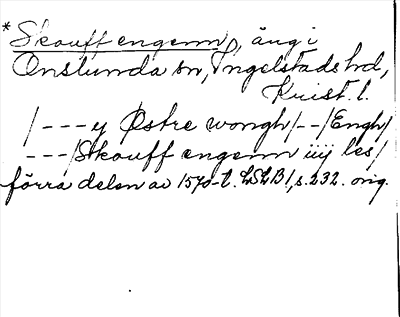 *Skouff engenn, äng i
Onslunda sn, Ingelstads hd,
Krist. l.
/---y Østre wongh/--/Engh/
---/Skouff engenn iiij les/
förra delen av 1570-t. LSLB1, s. 232. orig.